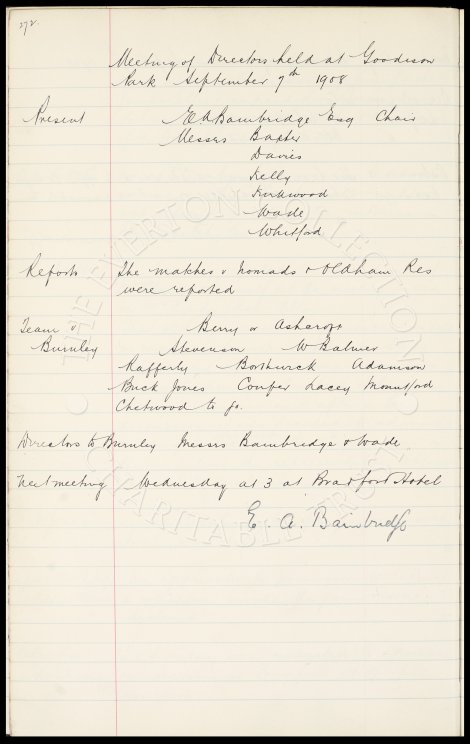 272.
Meeting of Directors held at Goodison
Park September 7th 1908
Present E A Bainbridge Esq Chair
Messrs Baxter
Davies
Kelly
Kirkwood
Wade
Whitford
Reports The matches v Nomads & Oldham Res
were reported
Team v Berry or Ashcroft
Burnley Stevenson W Balmer
Rafferty Borthwick Adamson
Buck Jones Couper Lacey Mountford
Chetwood to go.
Directors to Burnley Messrs Bainbridge & Wade
Next meeting Wednesday at 3 at Bradford Hotel
E. A. Bainbridge
THE EVERTON COLLECTION
CHARITABLE TRUST